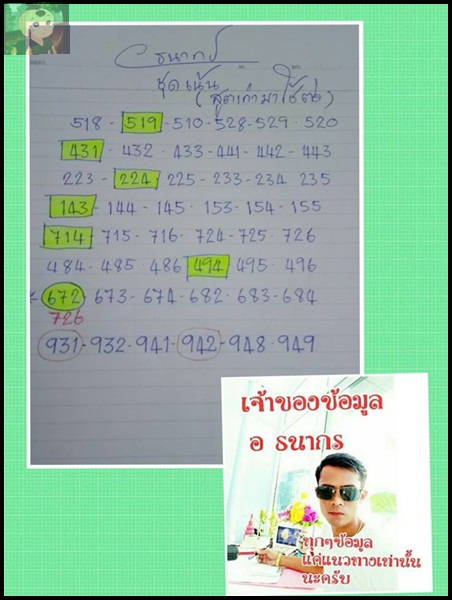 ธนากร
ชุดเน้น
(สูตเก่ามาใช้ต่อ)
518 - 519 - 510 - 528 - 529 - 520
431 - 432 - 433 - 441 - 442 - 443
223 - 224 - 225 - 233 - 234 235
143 - 144 - 145 - 153 - 154 - 155
714 - 715 - 716 - 724 - 725 - 726
484 - 485 - 486 494 - 495 - 496
672 - 673 - 674 - 682 - 683 - 684
726
931 - 932 - 941 - 942 - 948 - 949
เจ้าของข้อมูล
อ ธนากร
ทุกๆข้อมูล
แค่แนวทางเท่านั้น
นะครับ